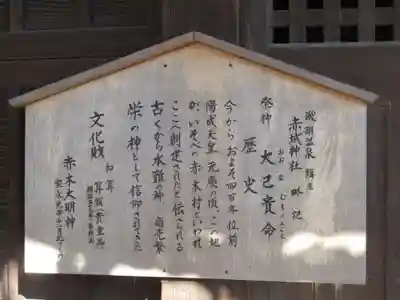 赤城神社 略記
祭神 大己貴命
おお むち
歴史
今から およそ四百年位前
陽成天皇 元慶の頃、この地
が、いそべの赤木村といわれ
ここへ創建されたと伝えられる
古くから水難の神 商売繁
栄の神として信仰されてきた
文化財 和算
算額
赤木大明神